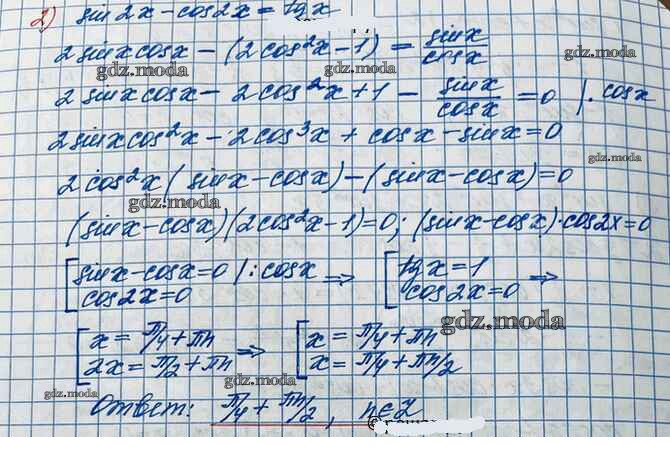 2) sin2x - cos2x = tgx
2 sinx cosx - (2cos²x - 1) = sinx/cosx
gdz.moda gdz.moda gdz.moda
2 sinx cosx - 2cos²x + 1 - sinx/cosx = 0 | · cosx
gdz.moda gdz.moda
2 sinx cos²x - 2cos³x + cosx - sinx = 0
gdz.moda
2cos²x (sinx - cosx) - (sinx - cosx) = 0
gdz.moda
(sinx - cosx)(2cos²x - 1) = 0; (sinx - cosx) · cos2x = 0
[ sinx - cosx = 0 | : cosx ⇒ [ tgx = 1 ⇒
cos2x = 0 cos2x = 0
gdz.moda gdz.moda
[ x = π/4 + πn ⇒ [ x = π/4 + πn
2x = π/2 + πn x = π/4 + πn/2
gdz.moda
gdz.moda
Ответ: π/4 + πn/2, n∈Z